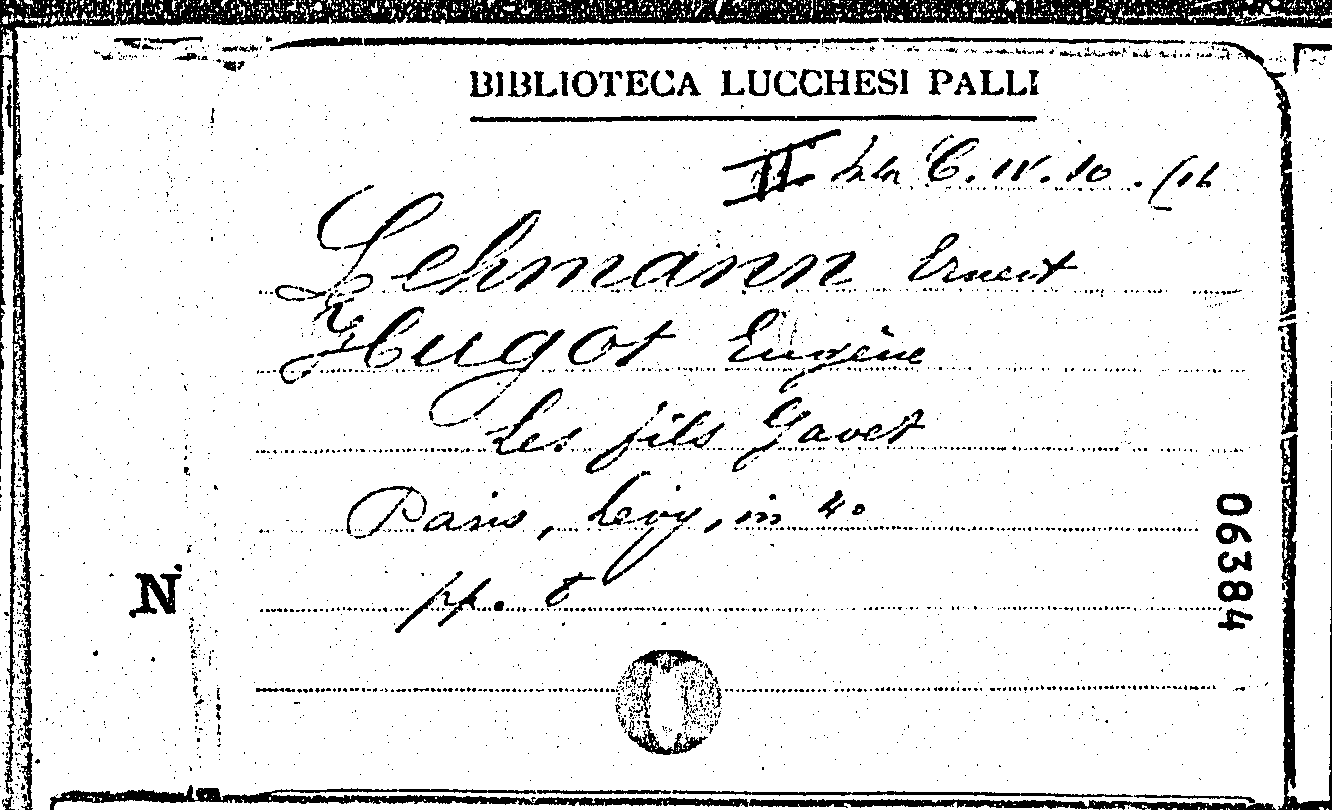 BIBLIOTECA LUCCHESI PALLI
II. C. IV. 10. (16
Lehmann Ernest
Hugot Eugène
Les fils Gavet
Paris, Lévy, in 4o
pp. 8
N
06384